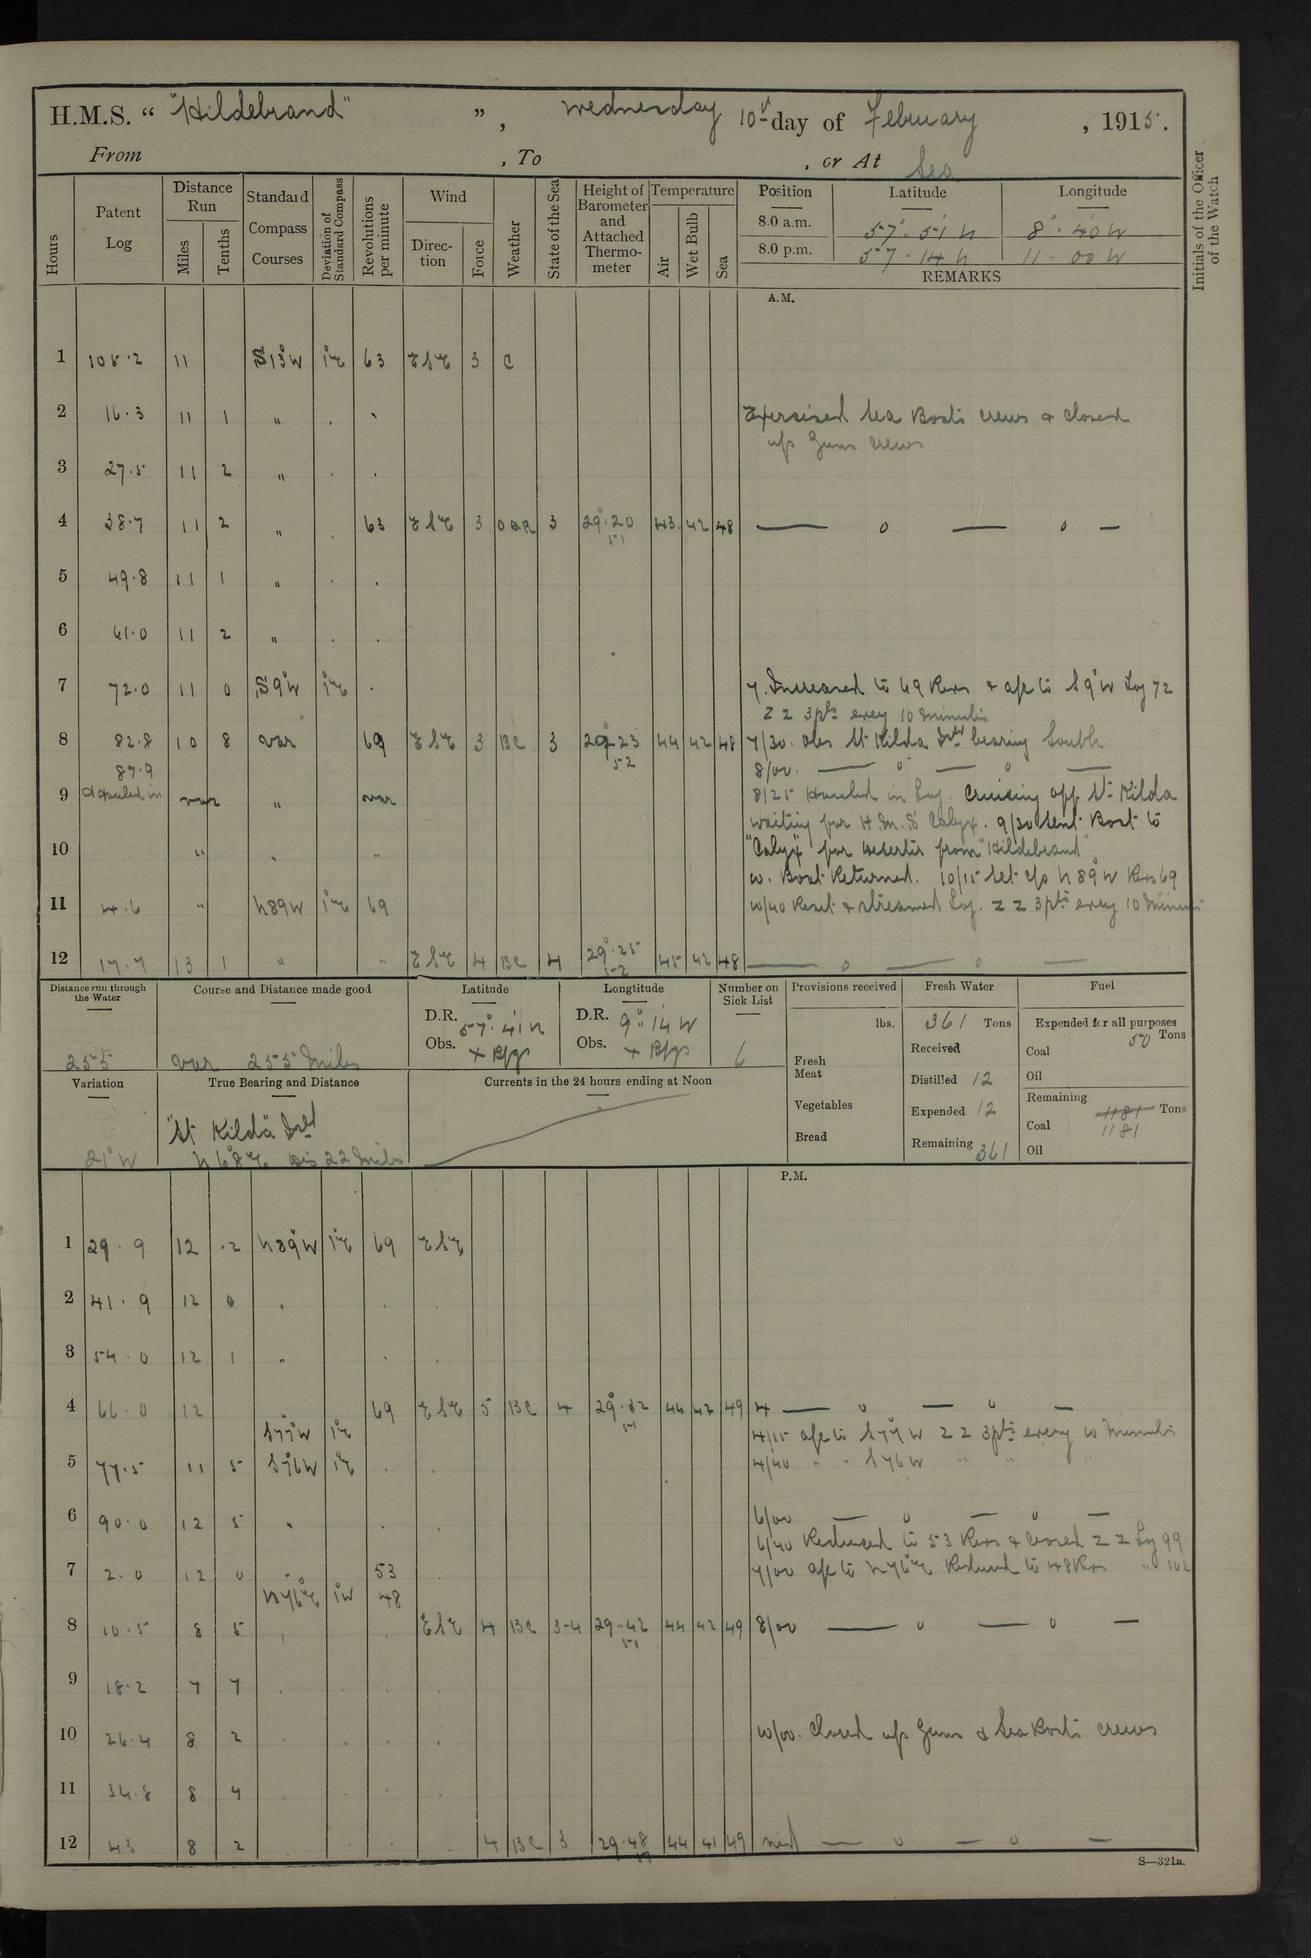 H.M.S. “ "Hildebrand" ”, Wednesday 10th day of February, 1915.
From , To , or At Sea
Hours
Patent Log
Distance Run
Miles
Tenths
Standard Compass Courses
Deviation of Standard Compass
Revolutions per minute
Wind
Direction
Force
Weather
State of the Sea
Height of Barometer and Attached Thermometer
Temperature
Air
Wet Bulb
Sea
Position Latitude Longitude
8.0 a.m. 57°.51' N 8°.40' W
8.0 p.m. 57.14 N 11.00 W
REMARKS
Initials of the Officer of the Watch
A.M.
1 105.2 11 S13°W 1°E 63 ESE 3 C
2 16.3 11 1 " . Exersised Sea Boats crews & closed
up Guns crews
3 27.5 11 2 " . .
4 38.7 11 2 " . 63 ESE 3 OQR 3 29.20 43 42 48 — 0 — 0 —
51
5 49.8 11 1 " . .
6 61.0 11 2 " . .
7 72.0 11 0 S9°W 1°E . 7. Increased to 69 Revs & a/c to S9°W Log 72
Z Z 3pts every 10 minutes
8 82.8 10 8 var 69 ESE 3 BC 3 29.23 44 42 48 7/30. Obs St Kilda Isld bearing South
52
87.9 8/00. — 0 — 0 —
9 Hauled in var " var 8/25 Hauled in Log. Cruising off St Kilda
waiting for H.M.S Calyx. 9/30 Sent Boat to
10 " " " "Calyx" for deserter from "Hildebrand"
10. Boat Returned. 10/15 Set c/o N 89°W Revs 69
11 4.6 " N89W 1°E 69 10/40 Reset & streamed Log. Z Z 3pts every 10 minutes
12 17.7 13 1 " " ESE 4 BC 4 29.25 45 42 48 — 0 — 0 —
52
Distance run through the Water
255
Course and Distance made good
var 255 Miles
Latitude
D.R. 57°.41' N
Obs.
Longtitude
D.R. 9°.14' W
Obs.
Number on Sick List
6
Provisions received
lbs.
Fresh Meat
Vegetables
Bread
Fresh Water
361 Tons
Received
Distilled 12
Expended 12
Remaining 361
Fuel
Expended for all purposes
50 Tons
Coal
Oil
Remaining
1181 Tons
Coal 1181
Oil
Variation
21°W
True Bearing and Distance
"St Kilda" Isld
N 68°E Dis 22 Miles
Currents in the 24 hours ending at Noon
P.M.
1 29.9 12 .2 N89°W 1°E 69 ESE
2 41.9 12 0 . . .
3 54.0 12 1 " . .
4 66.0 12 " 69 ESE 5 BC 4 29.32 44 42 49 4 — 0 — 0 —
51
S77°W 1°E 4/15 a/c to S77°W Z Z 3pts every 10 Minutes
5 77.5 11 5 S76W 1°E . . 4/40 " " S76W " " "
6 90.0 12 5 " . . 6/00 — 0 — 0 —
6/40 Reduced to 53 Revs & ceased Z Z Log 99
7 2.0 12 0 " 53 . 7/00 a/c to N76°E Reduced to 48 Revs " 102
N76°E 1°W 48
8 10.5 8 5 . . ESE 4 BC 3-4 29.42 44 42 49 8/00 — 0 — 0 —
51
9 18.2 7 7 . . . .
10 26.4 8 2 . . . . 10/00. Closed up Guns & Sea Boats crews
11 34.8 8 4 . . .
12 43 8 2 . . . 4 BC 3 29.48 44 41 49 mid — 0 — 0 —
S—321a.